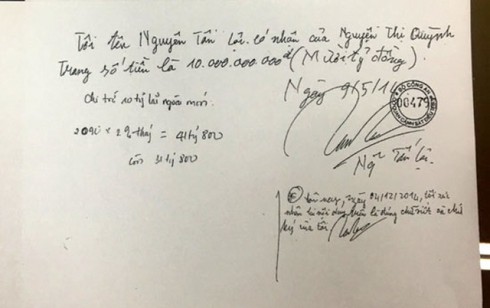 Tôi tên Nguyễn Tấn Lộc. có nhận của Nguyễn Thị Quỳnh
Trang số tiền là 10.000.000.000đ (Mười tỷ đồng).
Ngày 9/5/1
Chi trả 10 tỷ lấy ngoài mới
209tỉ × 2% thág = 41tỷ 800
còn 31tỷ 800
BỘ CÔNG AN
00479
Ng Tấn Lộc.
hôm nay, ngày 04/12/2014, tôi xác
nhận là nội dung trên là đúng chữ viết và chữ
ký của tôi